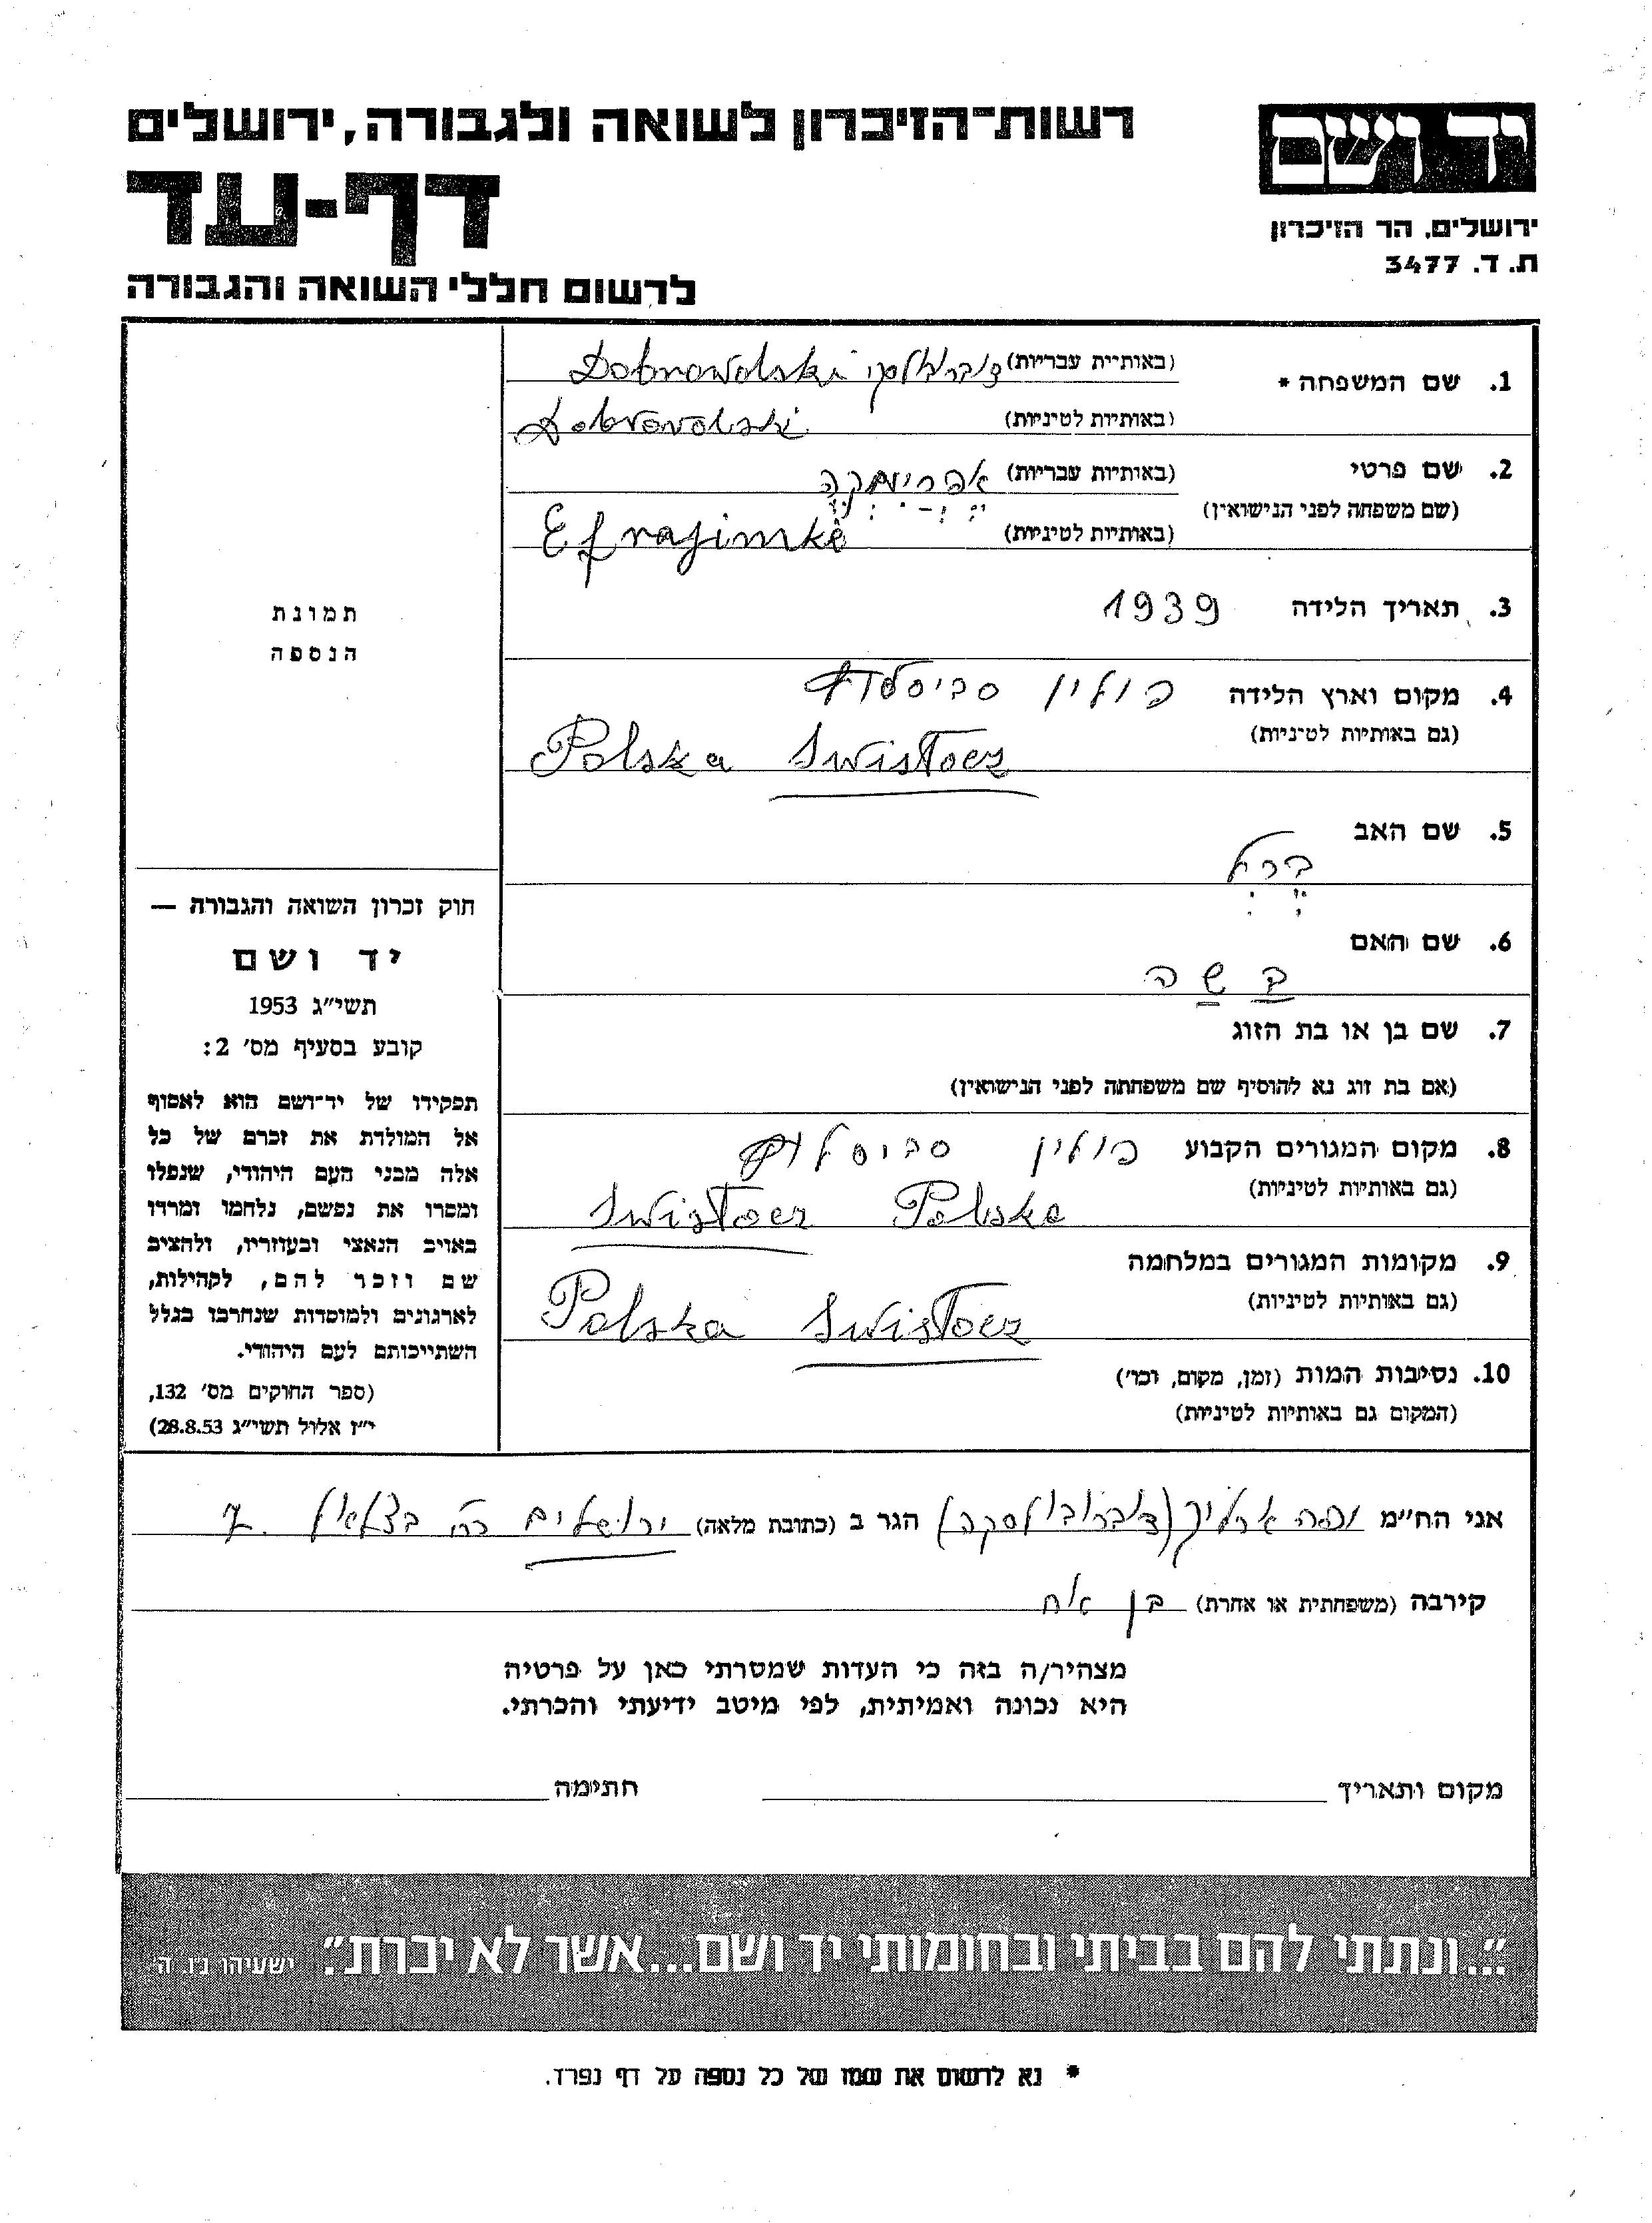 יד ושם
רשות־הזיכרון לשואה ולגבורה, ירושלים
דף-עד
ירושלים, הר הזיכרון
ת. ד. 3477
לרשום חללי השואה והגבורה
1. שם המשפחה * (באותיות עבריות) דוברוולסקי Dobrowolski
(באותיות לטיניות) Dobrovolski
2. שם פרטי (באותיות עבריות) אפריימקה
(שם משפחה לפני הנישואין) (באותיות לטיניות) Efrajimke
3. תאריך הלידה 1939
4. מקום וארץ הלידה פולין
(גם באותיות לטיניות) Polska Swistocz
5. שם האב
ברל
6. שם האם
בשה
7. שם בן או בת הזוג
(אם בת זוג נא להוסיף שם משפחתה לפני הנישואין)
8. מקום המגורים הקבוע פולין
(גם באותיות לטיניות) Swistocz Polska
9. מקומות המגורים במלחמה
(גם באותיות לטיניות) Polska Swistocz
10. נסיבות המות (זמן, מקום, וכו')
(המקום גם באותיות לטיניות)
תמונת
הנספה
חוק זכרון השואה והגבורה —
יד ושם
תשי"ג 1953
קובע בסעיף מס' 2:
תפקידו של יד־ושם הוא לאסוף
אל המולדת את זכרם של כל
אלה מבני העם היהודי, שנפלו
ומסרו את נפשם, נלחמו ומרדו
באויב הנאצי ובעוזריו, ולהציב
שם וזכר להם, לקהילות,
לארגונים ולמוסדות שנחרבו בגלל
השתייכותם לעם היהודי.
(ספר החוקים מס' 132,
י"ז אלול תשי"ג 28.8.53)
אני הח"מ יפה ארליך (דוברובולסקה) הגר ב (כתובת מלאה) ירושלים רח בצלאל 7
קירבה (משפחתית או אחרת) בן אח
מצהיר/ה בזה כי העדות שמסרתי כאן על פרטיה
היא נכונה ואמיתית, לפי מיטב ידיעתי והכרתי.
מקום ותאריך חתימה
"...ונתתי להם בביתי ובחומותי יד ושם...אשר לא יכרת." ישעיהו נ"ו, ה'
* נא לרשום את שמו של כל נספה על דף נפרד.